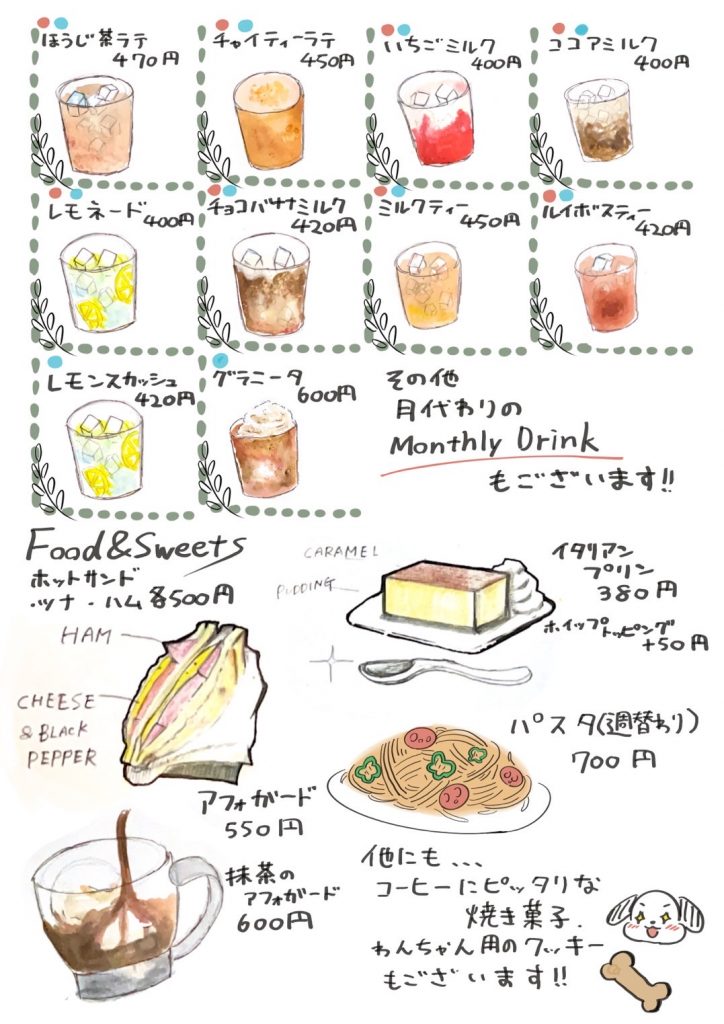 ほうじ茶ラテ
470円
チャイティーラテ
450円
いちごミルク
400円
ココアミルク
400円
レモネード
400円
チョコバナナミルク
420円
ミルクティー
450円
ルイボスティー
420円
レモンスカッシュ
420円
グラニータ
600円
その他
月代わりの
Monthly Drink
もございます!!
Food&Sweets
ホットサンド
・ツナ・ハム各500円
HAM
CHEESE
& BLACK
PEPPER
CARAMEL
PUDDING
イタリアン
プリン
380円
ホイップトッピング
+50円
パスタ(週替わり)
700円
アフォガード
550円
抹茶の
アフォガード
600円
他にも、、、
コーヒーにピッタリな
焼き菓子、
わんちゃん用のクッキー
もございます!!